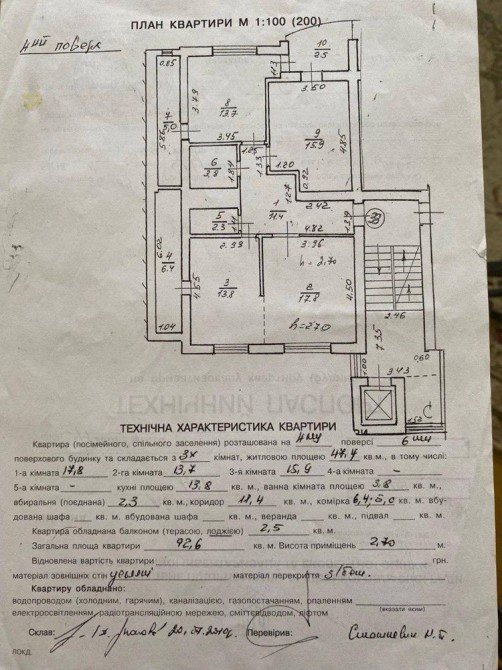 ПЛАН КВАРТИРИ М 1:100 (200)
4ий поверх
10
2.5
0.85
1.13
3.50
3.79
7
5,0
8
13.7
5.86
9
15.9
4.85
3.45
1.25
6
3.8
1.84
1.33
1.20
0.92
1.27
2.42
1
11.4
5
2.3
1.11
4.82
1.39
6.02
4
6.4
2.99
3.96
h = 2,70
3
13.8
4.55
2
17.8
4.50
h=270
1.04
2.46
7.35
0.60
3.43
1.00
ТЕХНІЧНА ХАРАКТЕРИСТИКА КВАРТИРИ
Квартира (посімейного, спільного заселення) розташована на 4му поверсі 6 ти
поверхового будинку та складається з 3х кімнат, житловою площею 47,4 кв.м., в тому числі:
1-а кімната 17,8 2-га кімната 13,7 3-я кімната 15,9 4-а кімната –
5-а кімната – кухні площею 13,8 кв. м., ванна кімната площею 3,8 кв. м.,
вбиральня (поєднана) 2,3 кв. м., коридор 11,4 кв. м., комірка 6,4; 5,0 кв. м. вбу-
дована шафа кв. м. вбудована шафа кв. м., веранда кв. м., підвал кв. м.
Квартира обладнана балконом (терасою, лоджією) 2,5 кв. м.
Загальна площа квартири 92,6 кв. м. Висота приміщень 2,70 м.
Відновлена вартість квартири грн.
матеріал зовнішніх стін матеріал перекриття з/бет.
Квартиру обладнано:
водопроводом (холодним, гарячим), каналізацією, газопостачанням, опаленням
(вказати яким)
електроосвітленням, радіотрансляційною мережею, сміттєвідводом, ліфтом
Склав: Перевірив:
ПОКД